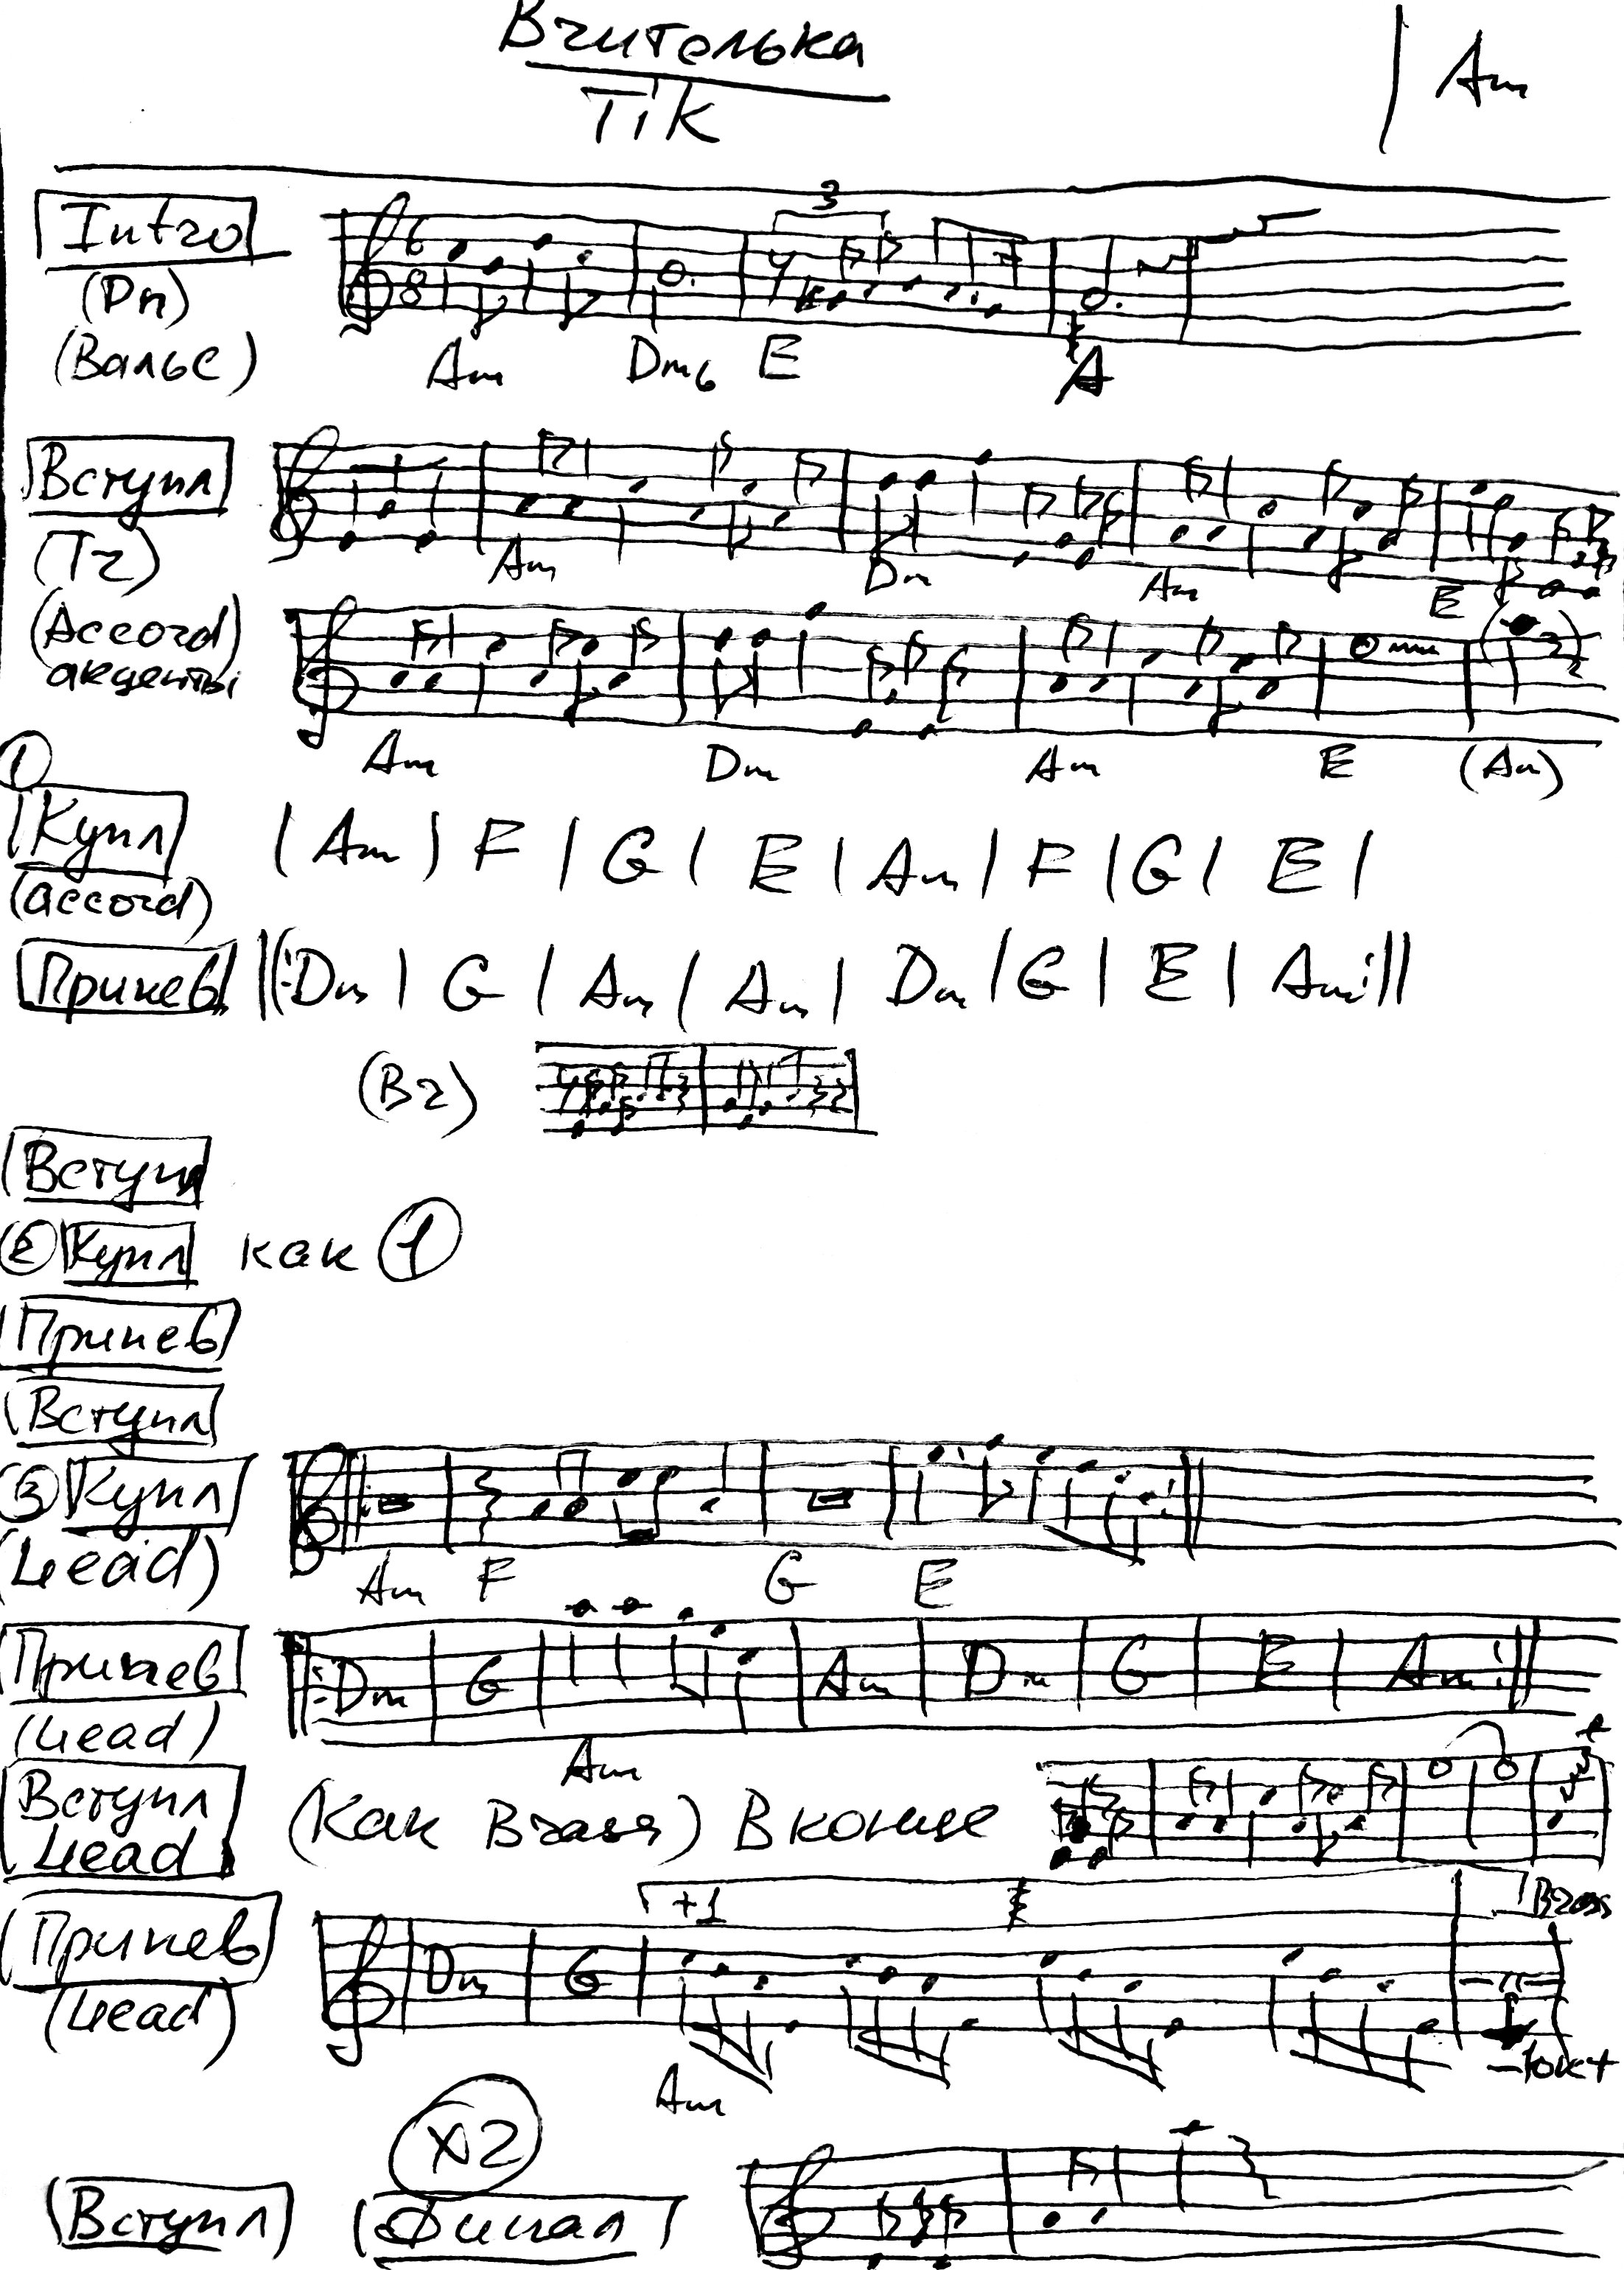 Вчителька
Тік
Am
Intro
(Pn)
(Вальс)
6
8
3
Am Dm6 E A
Вступл
(Tr)
Am Dm Am E
(Accord)
акценты
Am Dm Am E (Am)
1
Купл
(accord)
| Am | F | G | E | Am | F | G | E |
Припев ||: Dm | G | Am | Am | Dm | G | E | Am :||
(Br)
Вступл
2 Купл как 1
Припев
Вступл
3 Купл
(Lead)
Am F G E
Припев
(Lead)
Dm G Am Dm G E Am
Am
Вступл
Lead
(как Brass) В конце
+1
Brass
Припев
(Lead)
Dm G
Am
-1окт
x2
Вступл Финал